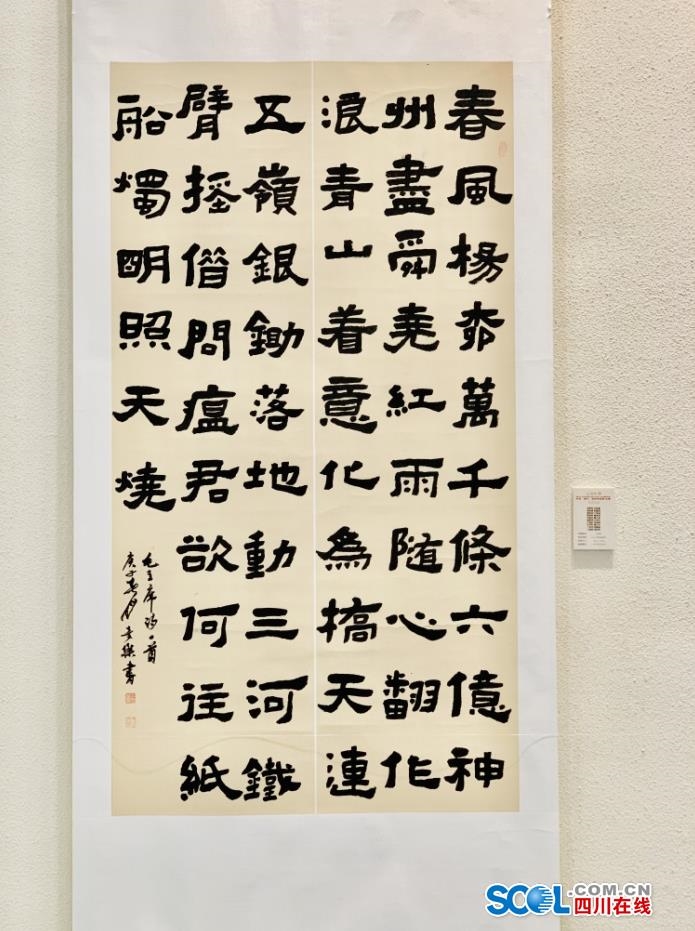 春風楊柳萬千條六億神
州盡舜堯紅雨随心翻作
浪青山着意化為橋天連
五嶺銀鋤落地動三河鐵
臂摇借問瘟君欲何往紙
船燭明照天燒
毛主席诗一首
庚子春月書
SCOL.COM.CN
四川在线